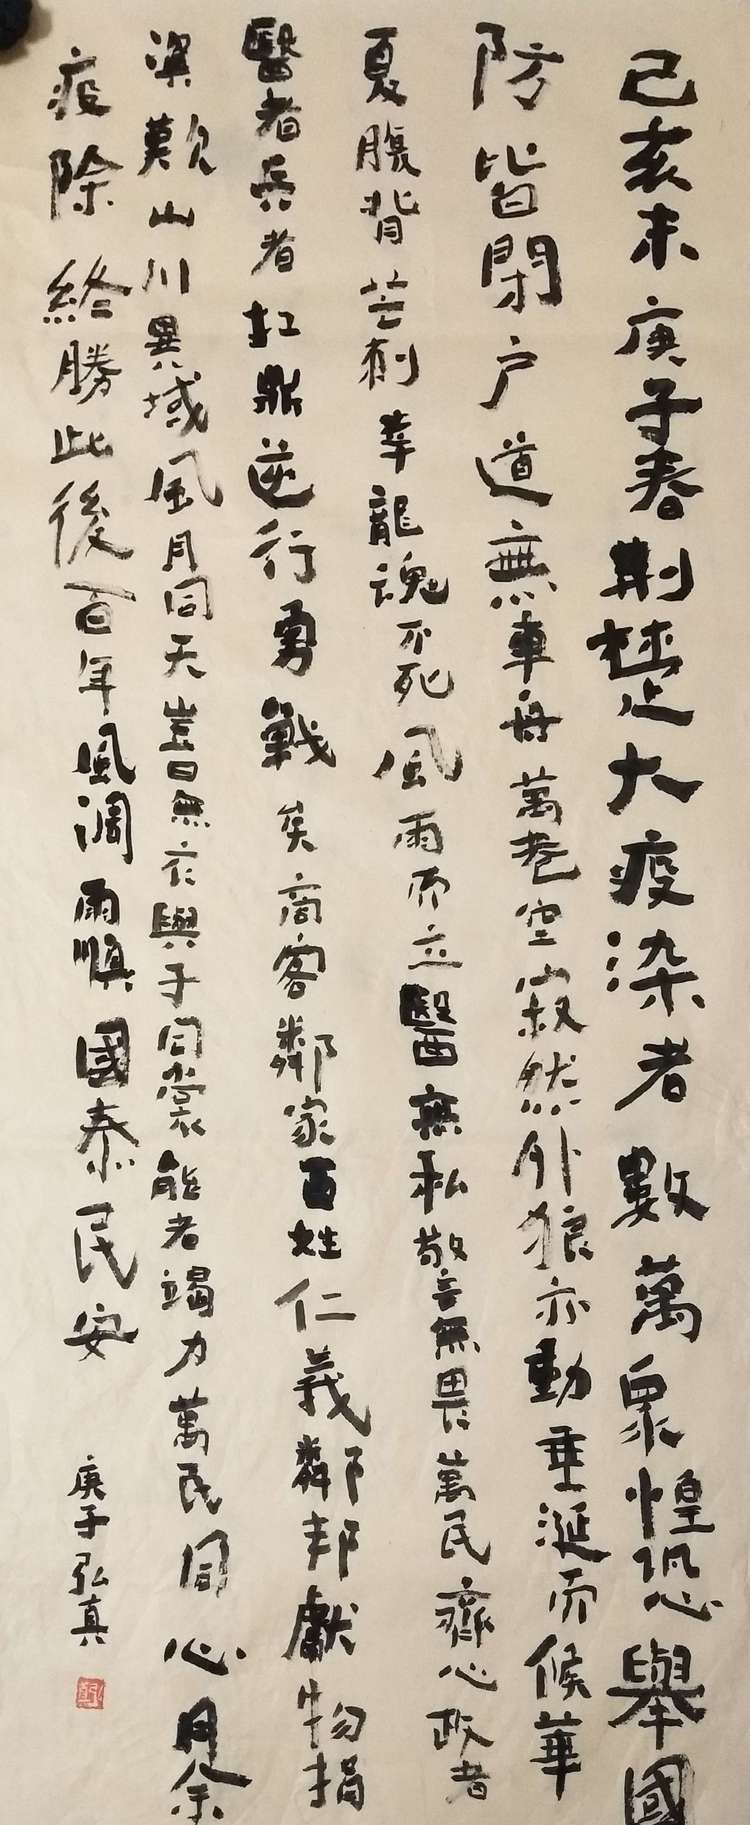 己亥末庚子春荆楚大疫染者數萬眾惶恐舉國
防皆閉户道無車舟萬巷空寂然外狼亦動垂涎而候華
夏腹背芒刺幸龍魂不死風雨而立醫無私敬言無畏萬民齊心政者
醫者兵者扛鼎逆行勇戰矣商客鄰家百姓仁義鄰邦獻物捐
梁歎山川異域風月同天豈曰無衣與子同裳能者竭力萬民同心月余
疫除終勝此後百年風調雨順國泰民安
庚子弘真